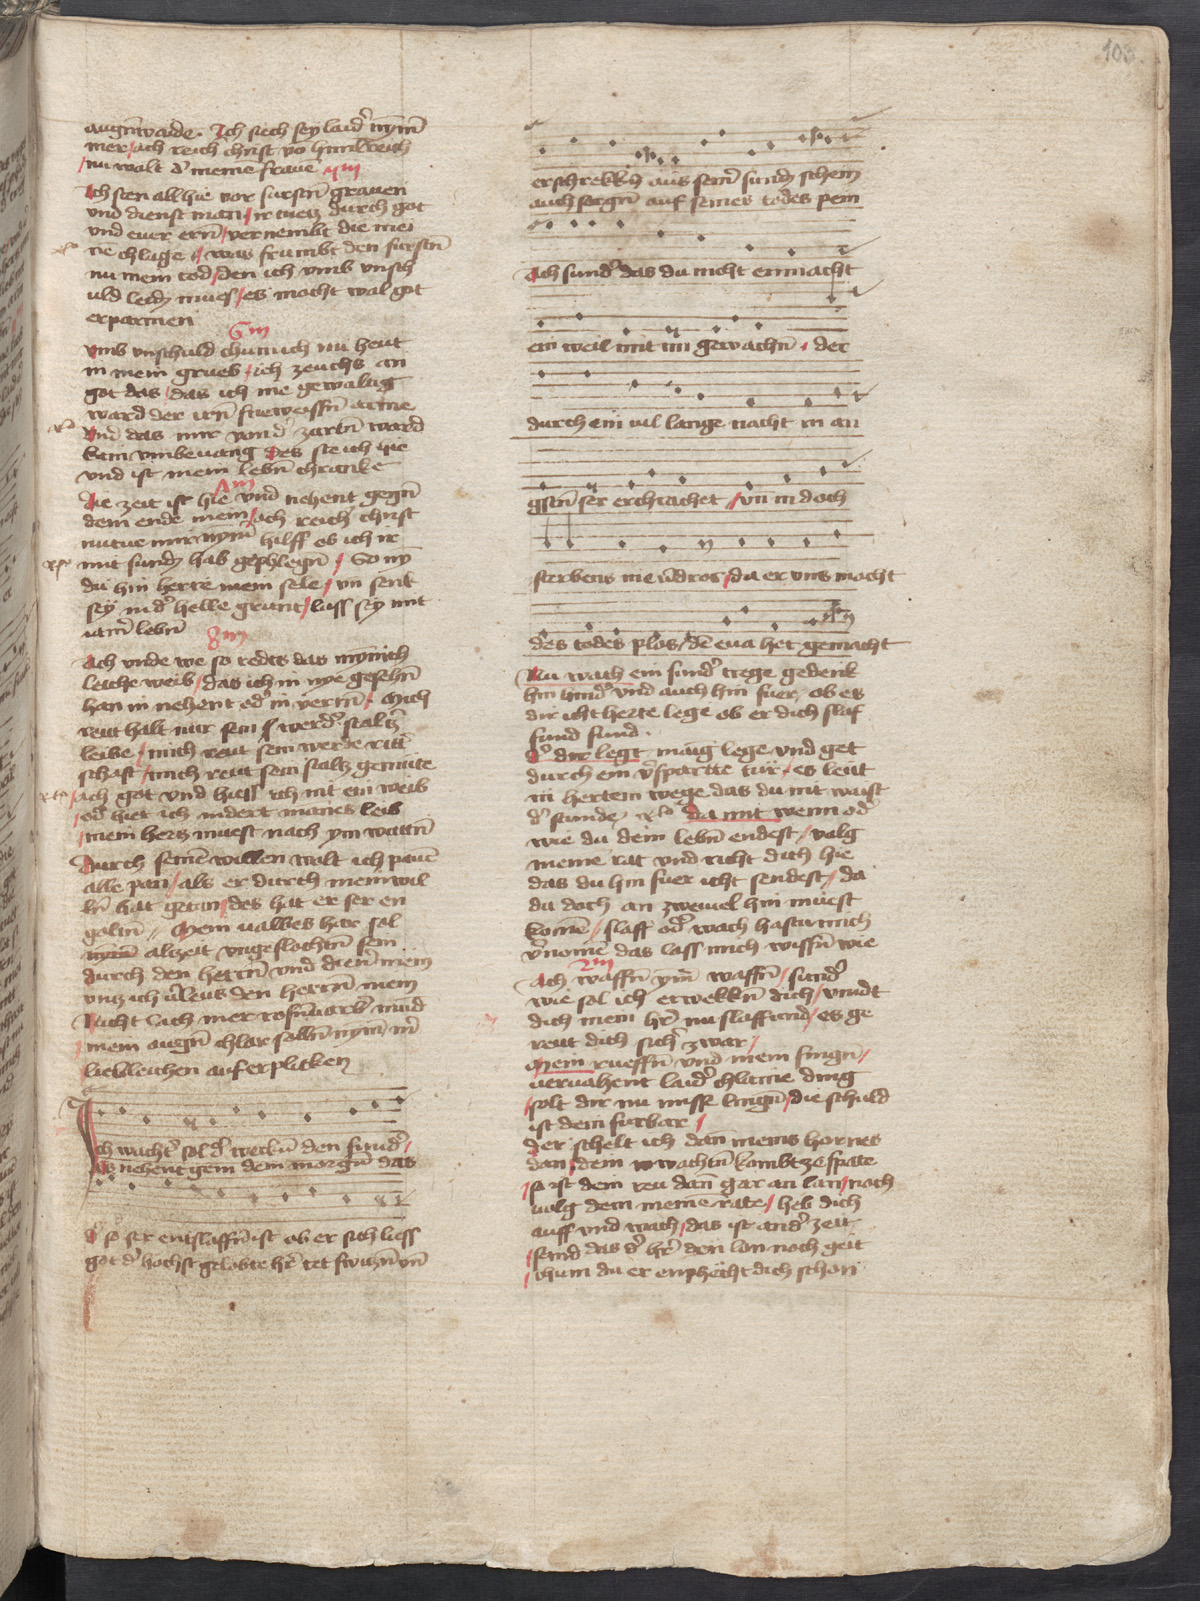 103
augn̄waide. Ich sich sey laid̉ nym̄
mer / ach reich christ vō himelreich
/ nu walt d̉ meine fraue
Ich sten all hie vor fursten grauen
vnd dienst man / ir tuetz durch got
vnd euer ern̄ / vernembt die mei
ne chlage / was frumbt den fursten
nu mein tod / den ich vmb vnsch
uld leidn mues / es mocht wal got
erparmen
6m
vmb vnschuld chum ich nu heut
in mein grueb / ich zeuchs an
got das / das ich nie gewaltig
ward der irn̄ sneweissn̄ arme
vnd das mir von d̉ zartn̄ ward
kain vmbeuang des ste ich hie
vnd ist mein lebn̄ chranke
Die zeit ist hie vnd nehent gegn̄
dem ende mein / ach reich christ
nu tue mir nym̄ hilff ob ich ir
mit sundn hab gephlegn̄ / So ny
du hin herre mein sele / vn̄ senk
sey in d̉ helle grunt / lass sey mit
iam̉ lebn̄
8m
Ach vnde we so redts das mynich
leiche weib / das ich in nye gesehn̄
han in nehent od̉ in verrn̄ / Mich
reut halt nur sein werd̉ staltz̉
leibe / mich reut sein werde ritt̉
schaft / mich reut sein staltz gemute
/ ach got vnd hiess ich nit ein weib
/ od̉ hiet ich indert manes leib
/ mein hertz muest nach ym watn̄
Durch seinē willen walt ich pauē
alle pan / als er durch mein wil
ln̄ hat getan / des hat er ser en
goltn̄ // Mein valbes har sol
altzeit vngeflochtn̄ sein
durch den herrn̄ vnd dien̉ mein
vntz ich v̉leus den herrn̄ mein
Nicht lach mer rosn̄uarb̉ mund
/ mein augn̄ chlar solln̄ nym̄ m̉
liebleichen auf erplicken
Ich wacht̉ sol d̉ weckn̄ den sund̉ /
Es nehent gein dem morgn̄ das
d̉ so ser entslaffn̄ ist ob er sich liess
got d̉ hochst gelobte h̉r tet swizn̄ vn̄
erschrekkn̄ aus sein̉ sundn schein
auch sorgn̄ auf seines todes pein
Ach sund̉ das du nicht enmacht
ein weil mit im gewachn̄ / der
durch ein vil lange nacht in an
gstn̄ ser erchrachet / vn̄ in doch
sterbens nie v̉dros / da er vns macht
des todes plos / dē eua het gemacht
Nu wach ein sund̉ trege gedenk
hin hind̉ vnd auch hin fuer / ob es
dir icht herte lege ob er dich slaf
fund sund.
D̉ dir legt mang lege vnd get
durch ein v̉sparrte tur / es leut
in hertem wege das du nit waist
d̉ stunde / da mit wenn od̉
wie du dein lebn̄ endest / volg
meinē rat vnd richt dich hie
das du hin fuer icht sendest / da
du doch an zweiuel hin muest
komē / slaff od̉ wach hastu mich
v̉nomē das lass mich wissn̄ wie
2m
Ach waffn̄ ym̄ waffn̄ / sund̉
wie sol ich erwekkn̄ dich / vindt
dich mein h̉r nu slaffund / es ge
reut dich sich̉ zwar /
Mein rueffn̄ vnd mein singn̄ /
veruahent laid̉ chlaine ding
/ solt dir nu misse lingn̄ / die schuld
ist dein furbar /
Der schelt ich dan meins hornes
don / dein wachtn̄ kombt ze spate
/ so ist dein reu dan̄ gar an lan / noch
volg dem meine rate / heb dich
auff vnd wach / das ist and̉ zeit
/ seind das d̉ h̉r den lon noch geit
/ chum du er enphecht dich schon